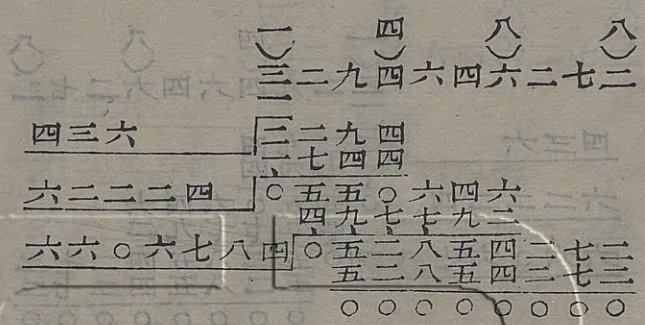 一︶ 四︶ 八︶ 八︶
三二九四六四六二七二
一
四三六 二二九四
一七四四
六二二二四 ○五五○六四六
四九七七九二
六六○六七八四 ○五二八五四二七二
五二八五四二七二
○○○○○○○○